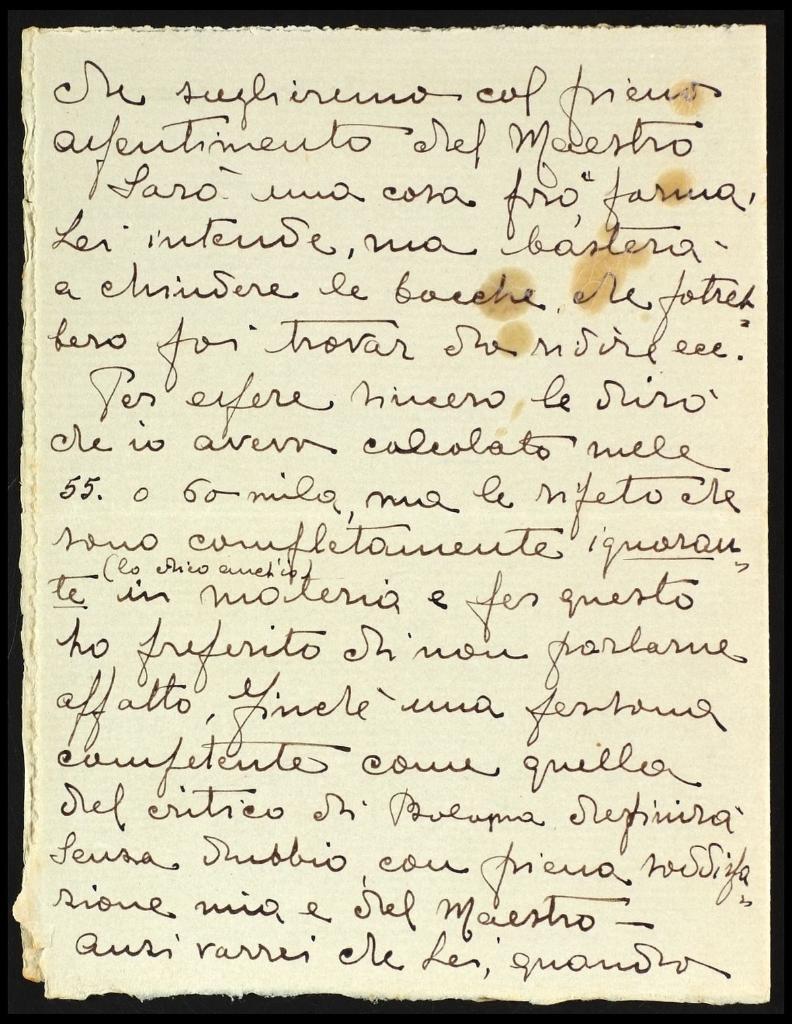 che sceglieremo col pieno
assentimento del Maestro
Sarà una cosa pro" forma,
Lei intende, ma basterà
a chiudere le bocche, che potreb=
bero poi trovar da ridire ecc.
Per essere sincero le dirò
che io avevo calcolato nelle
55. o 60 mila, ma le ripeto che
sono completamente ignoran=
(lo dico anch'io)
te in materia e per questo
ho preferito di non parlarne
affatto, finchè una persona
competente come quella
del critico di Bologna definirà
senza dubbio, con piena soddisfa=
zione mia e del Maestro —
Anzi vorrei che Lei, quando